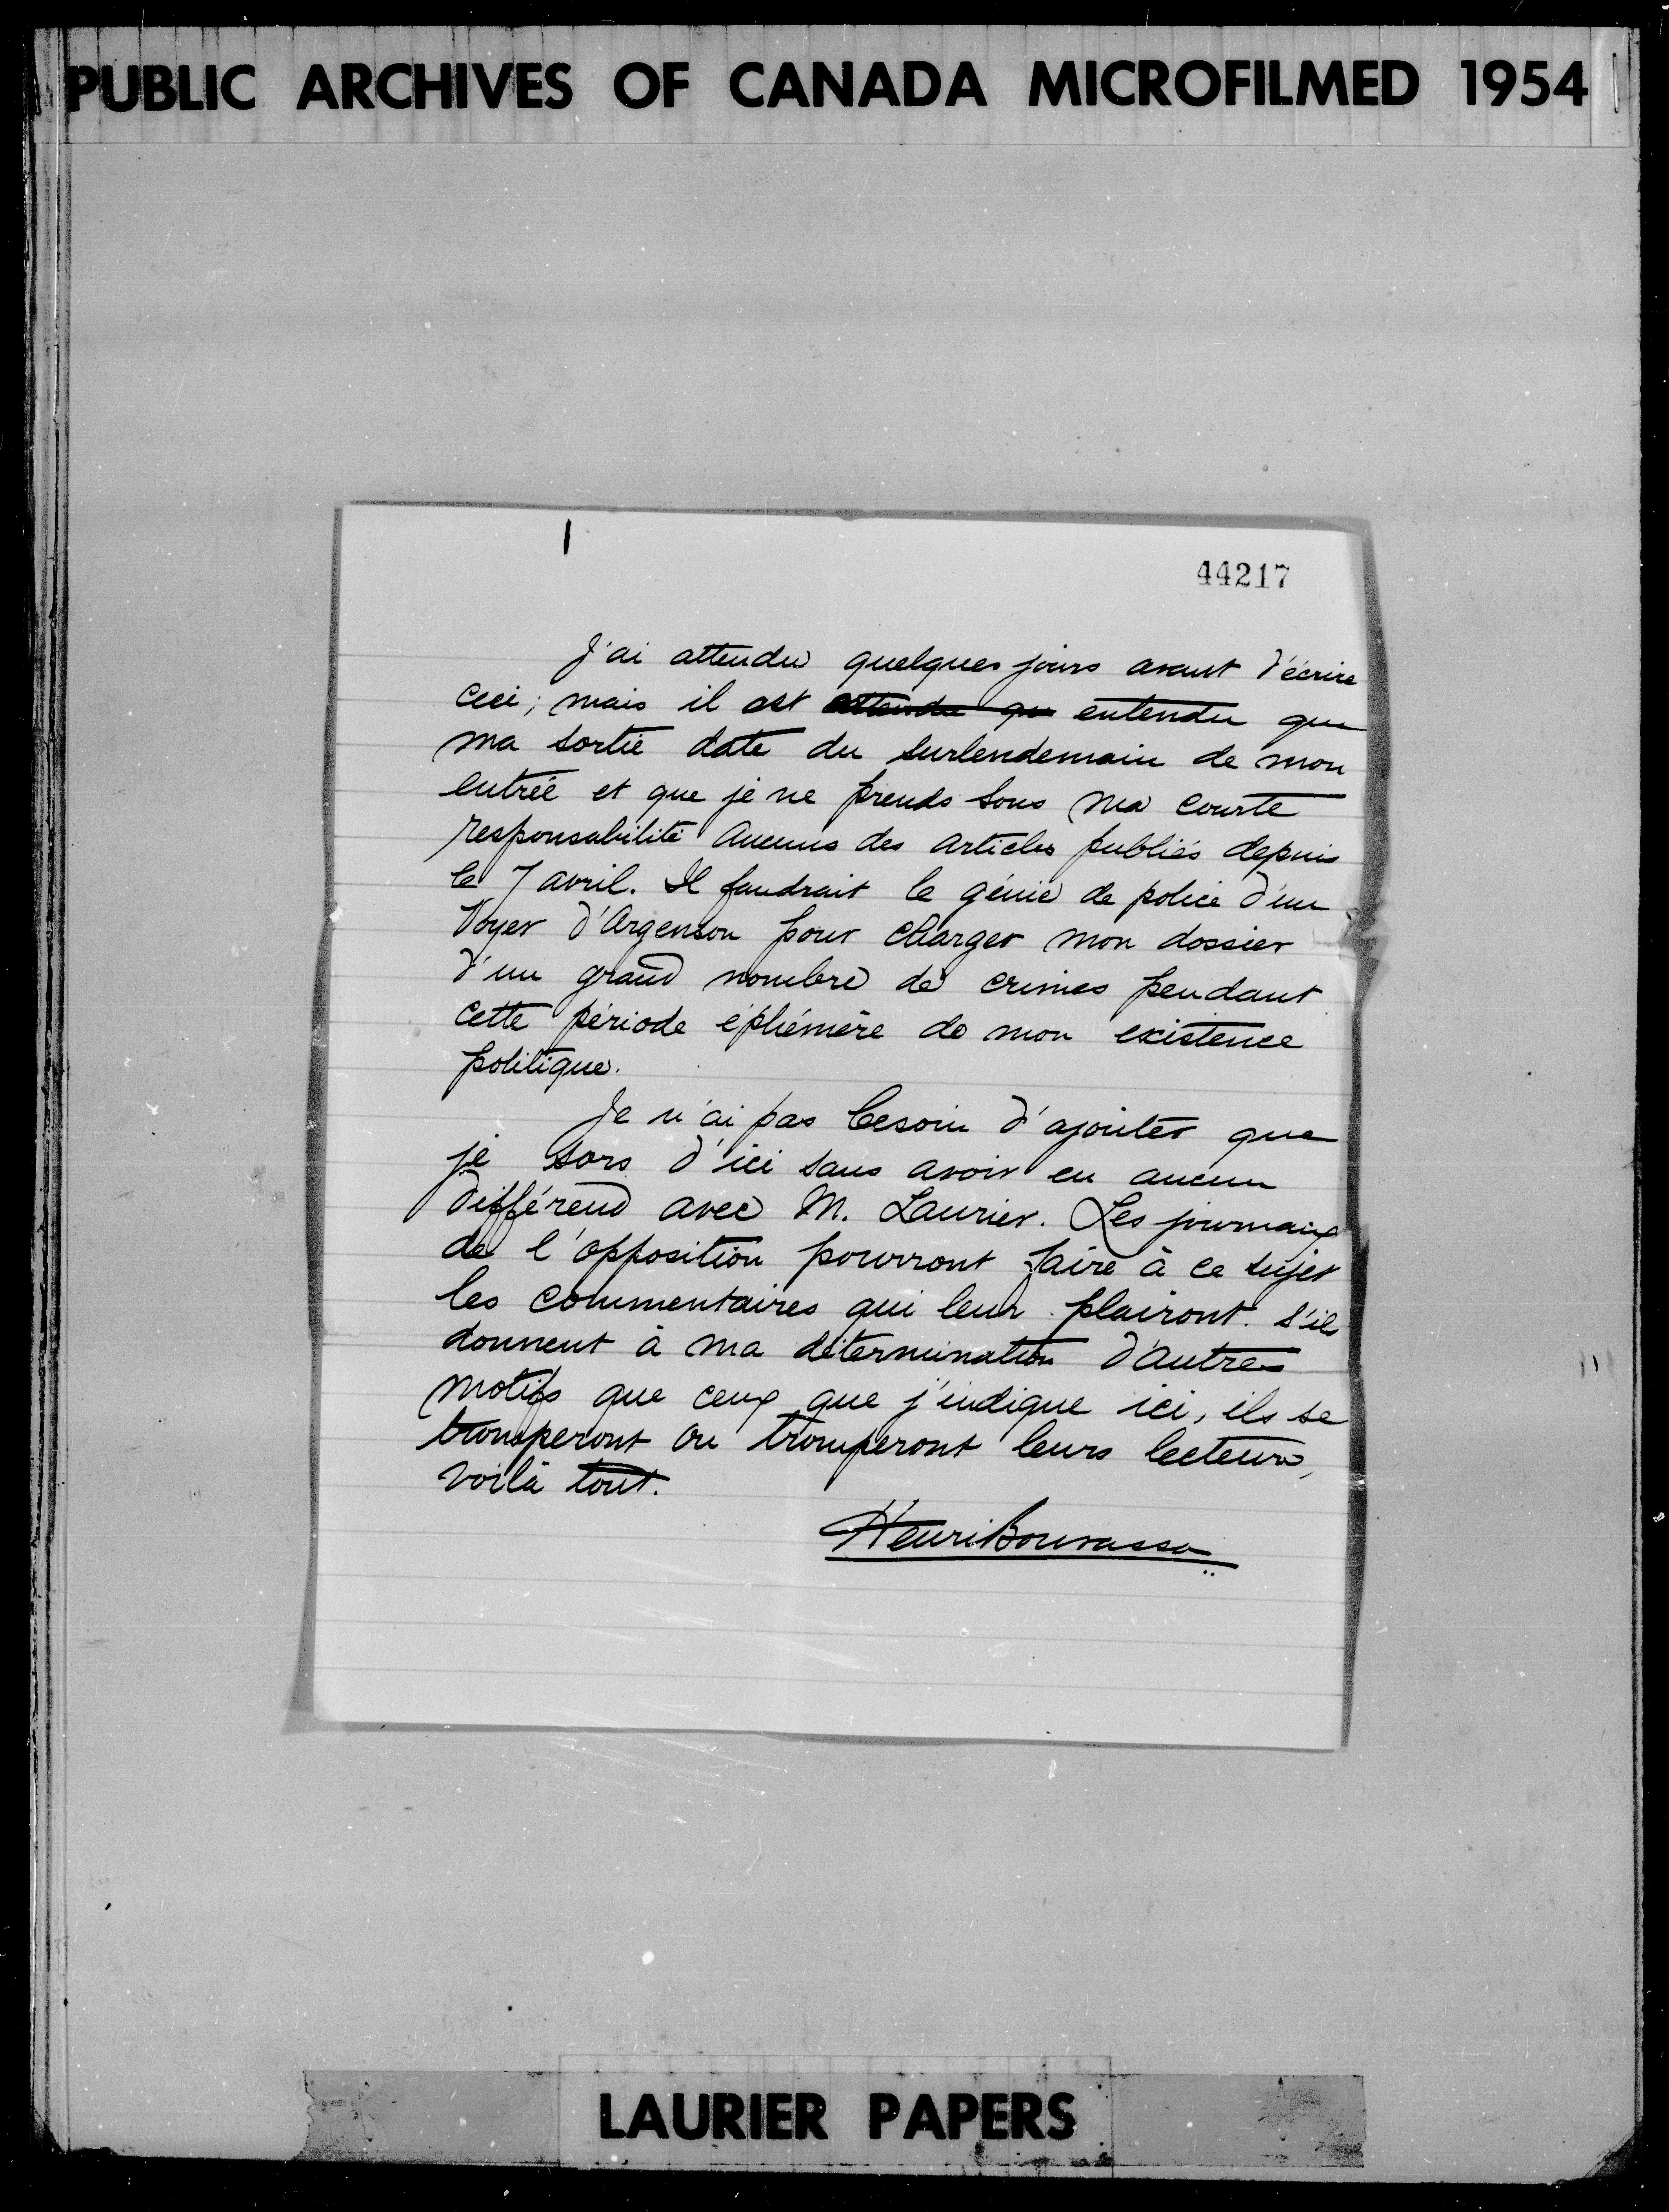 PUBLIC ARCHIVES OF CANADA MICROFILMED 1954
44217
J'ai attendu quelques jours avant d'écrire
ceci; mais il est attendu que entendu que
ma sortie date du surlendemain de mon
entrée et que je ne prends sous ma courte
responsabilité aucuns des articles publiés depuis
le 7 avril. Il faudrait le génie de police d'un
Voyer d'Argenson pour charger mon dossier
d'un grand nombre de crimes pendant
cette période éphémère de mon existence
politique.
Je n'ai pas besoin d'ajouter que
je sors d'ici sans avoir eu aucun
différend avec M. Laurier. Les journaux
de l'opposition pourront faire à ce sujet
les commentaires qui leur plairont. S'ils
donnent à ma détermination d'autres
motifs que ceux que j'indique ici, ils se
tromperont ou tromperont leurs lecteurs,
voilà tout.
Henri Bourassa
LAURIER PAPERS